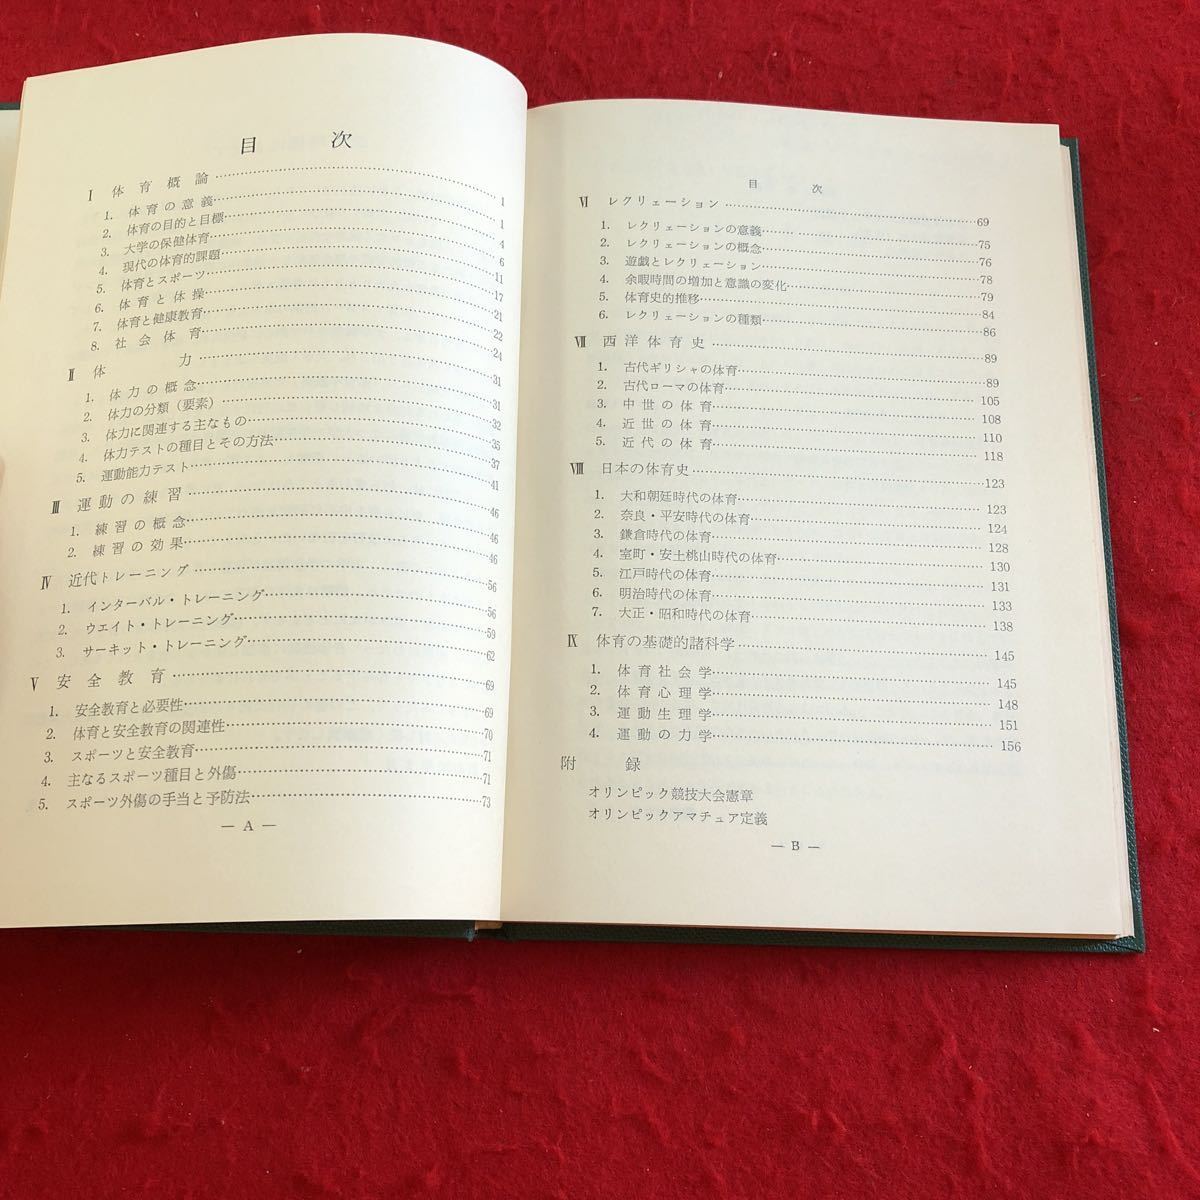 目次
Ⅰ 体育概論……1
1. 体育の意義……1
2. 体育の目的と目標……4
3. 大学の保健体育……6
4. 現代の体育的課題……11
5. 体育とスポーツ……17
6. 体育と体操……21
7. 体育と健康教育……22
8. 社会体育……24
Ⅱ 体力……31
1. 体力の概念……31
2. 体力の分類（要素）……32
3. 体力に関連する主なもの……35
4. 体力テストの種目とその方法……37
5. 運動能力テスト……41
Ⅲ 運動の練習……46
1. 練習の概念……46
2. 練習の効果……46
Ⅳ 近代トレーニング……56
1. インターバル・トレーニング……56
2. ウエイト・トレーニング……59
3. サーキット・トレーニング……62
Ⅴ 安全教育……69
1. 安全教育と必要性……69
2. 体育と安全教育の関連性……70
3. スポーツと安全教育……71
4. 主なるスポーツ種目と外傷……71
5. スポーツ外傷の手当と予防法……73
— A —
目次
Ⅵ レクリェーション……69
1. レクリェーションの意義……75
2. レクリェーションの概念……76
3. 遊戯とレクリェーション……78
4. 余暇時間の増加と意識の変化……79
5. 体育史的推移……84
6. レクリェーションの種類……86
Ⅶ 西洋体育史……89
1. 古代ギリシャの体育……89
2. 古代ローマの体育……105
3. 中世の体育……108
4. 近世の体育……110
5. 近代の体育……118
Ⅷ 日本の体育史……123
1. 大和朝廷時代の体育……123
2. 奈良・平安時代の体育……124
3. 鎌倉時代の体育……128
4. 室町・安土桃山時代の体育……130
5. 江戸時代の体育……131
6. 明治時代の体育……133
7. 大正・昭和時代の体育……138
Ⅸ 体育の基礎的諸科学……145
1. 体育社会学……145
2. 体育心理学……148
3. 運動生理学……151
4. 運動の力学……156
附録
オリンピック競技大会憲章
オリンピックアマチュア定義
— B —